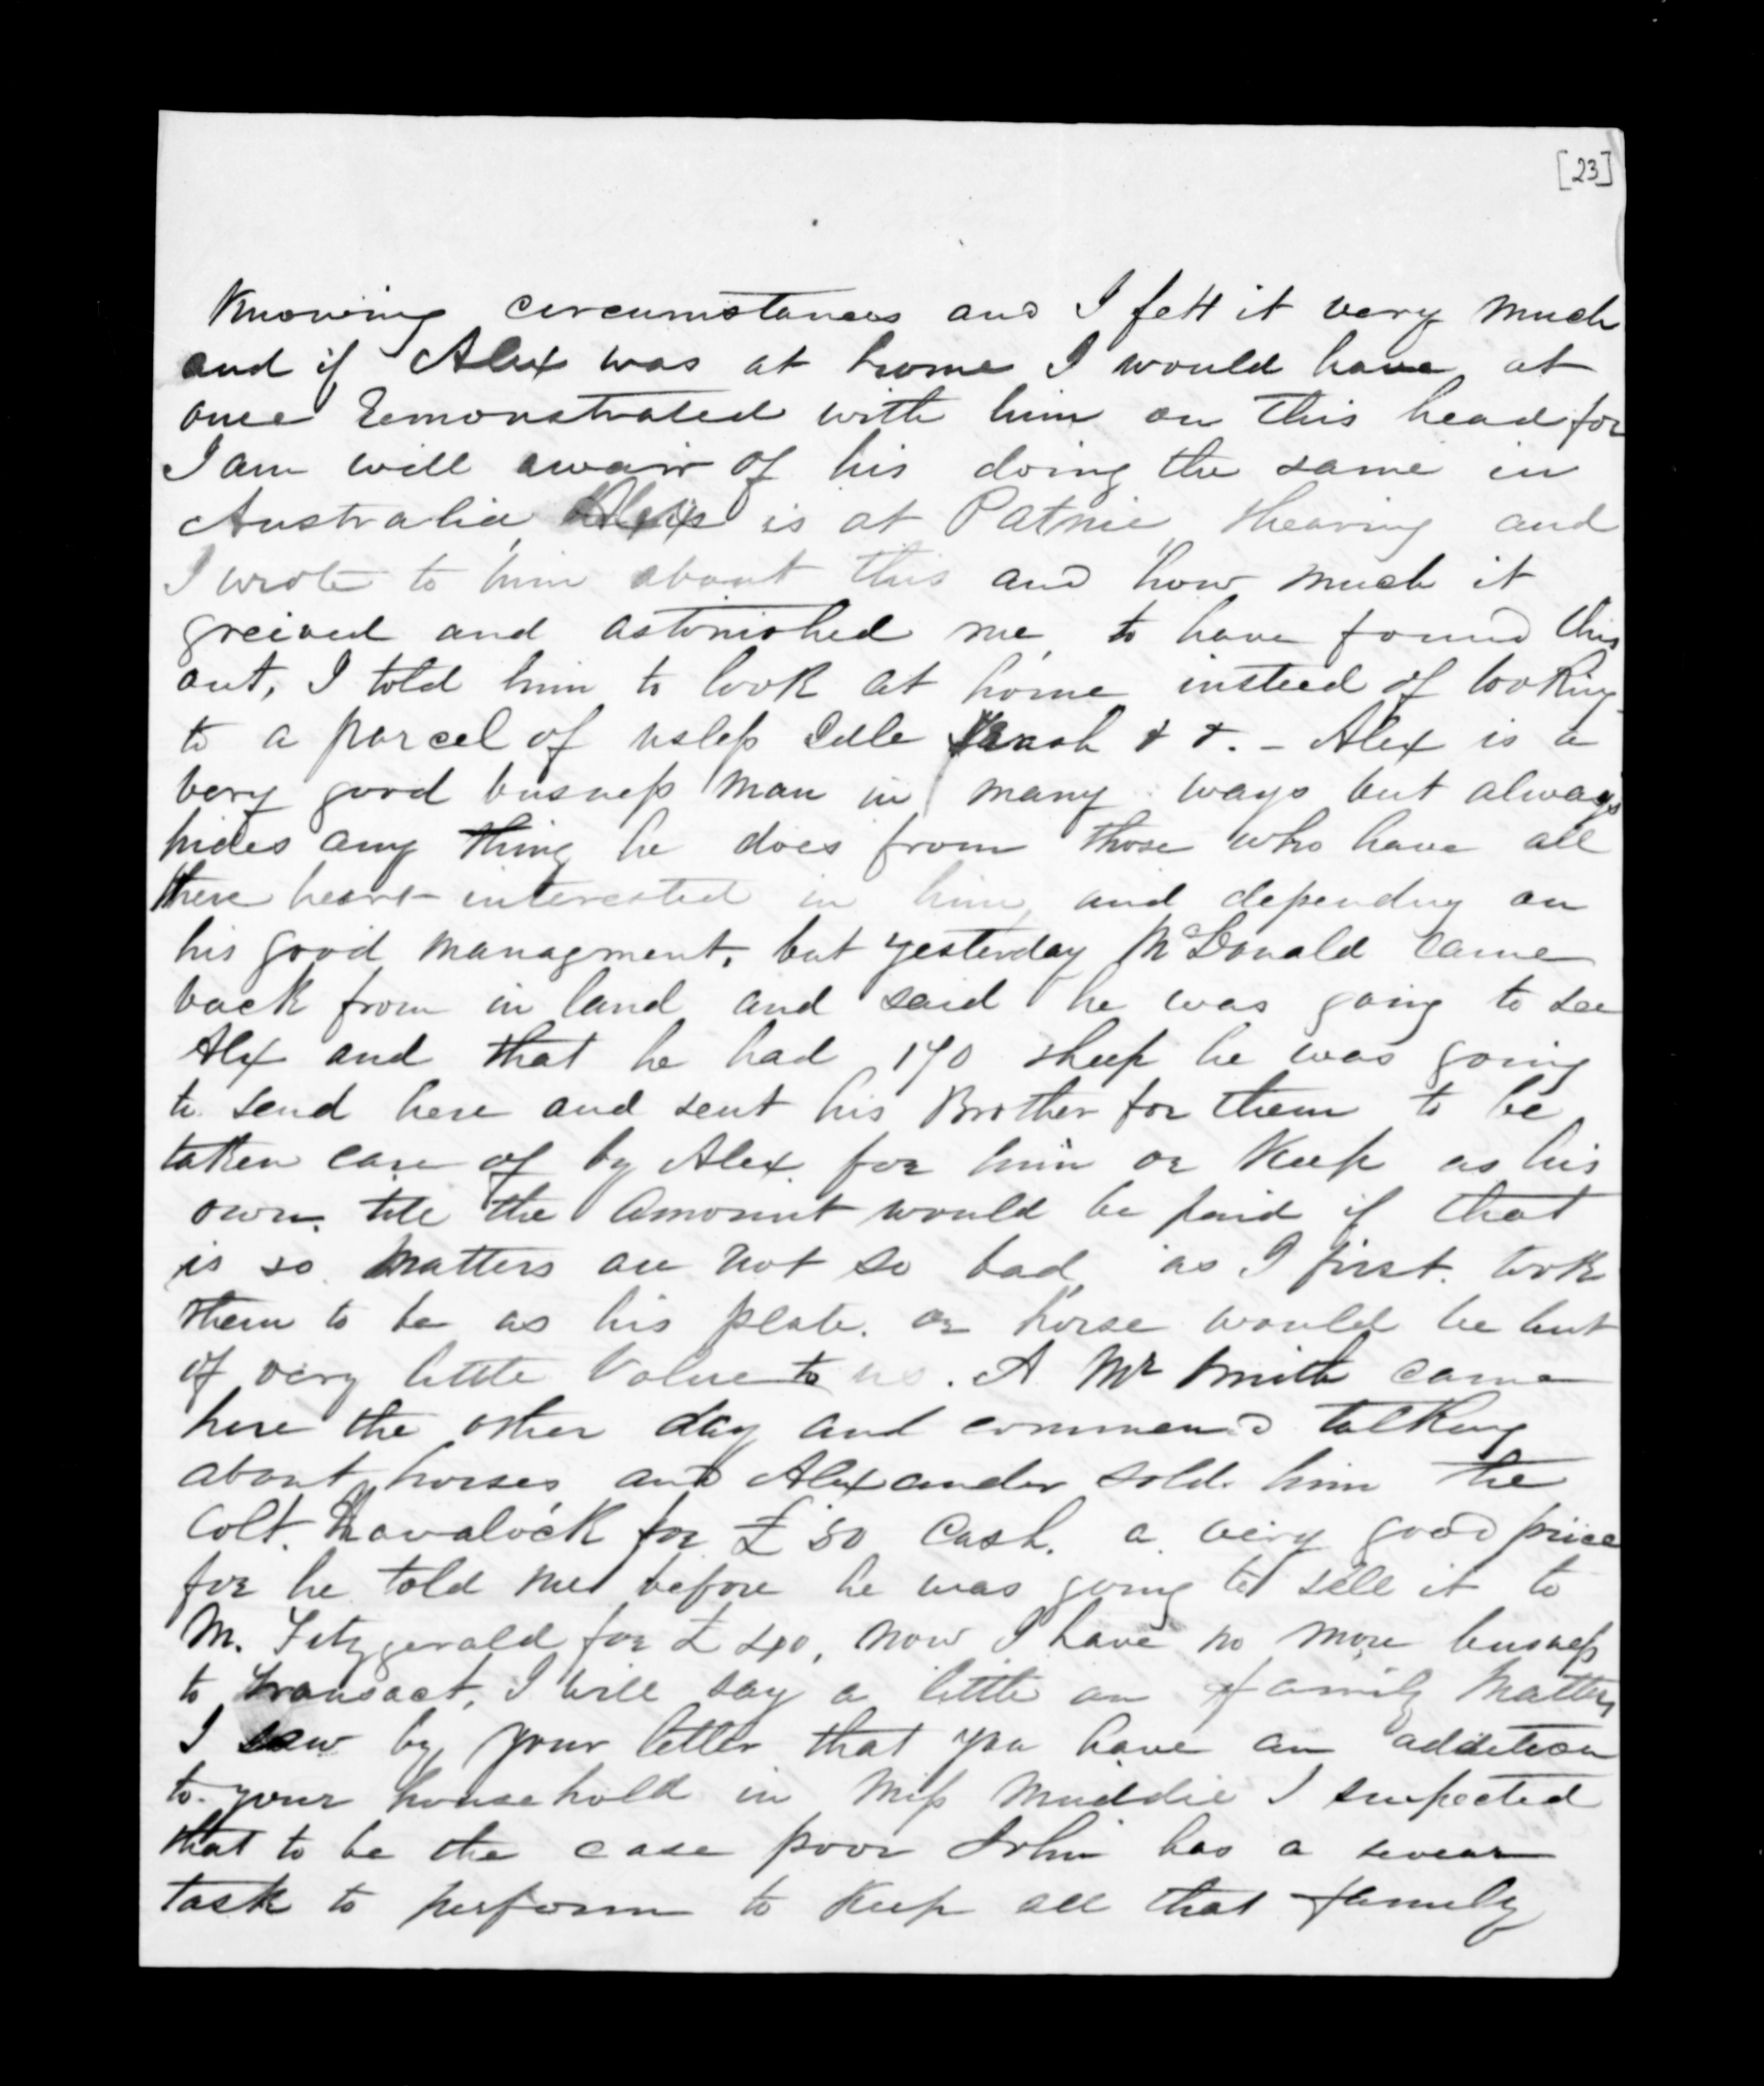 [23]
Knowing circumstances and I felt it very much
and if Alex was at home I would have at
once remonstrated with him on this head for
I am will awair of his doing the same in
Australia, Alex is at Patnie, shearing and
I wrote to him about this and how much it
greived and astonished me, to have found this
out, I told him to look at home insteed of looking
to a parcel of usless Idle trash & &. - Alex is a
very good busness man in many ways but always
hides any thing he does from those who have all
there heart interested in him, and dependng on
his good managment, but yesterday McDonald came
back from in land and said he was going to see
Alex and that he had 170 sheep he was going
to send here and sent his Brother for them to be
taken care of by Alex for him or Keep as his
own till the amount would be paid if that
is so matters are not so bad, as I first took
them to be as his plate. or horse would be but
of very little Value to us. A Mr Smith came
here the other day and commenc'd talking
about horses and Alexander sold him the
Colt. Havalock for £50 Cash. a very good price
for he told me before he was going to sell it to
M. Fitzgerald for £40, now I have no more busness
to transact, I will say a little on family matters
I saw by your letter that you have an addition
to your household in Miss Muddie I suspected
that to be the case poor John has a sevear
task to perform to Keep all that family